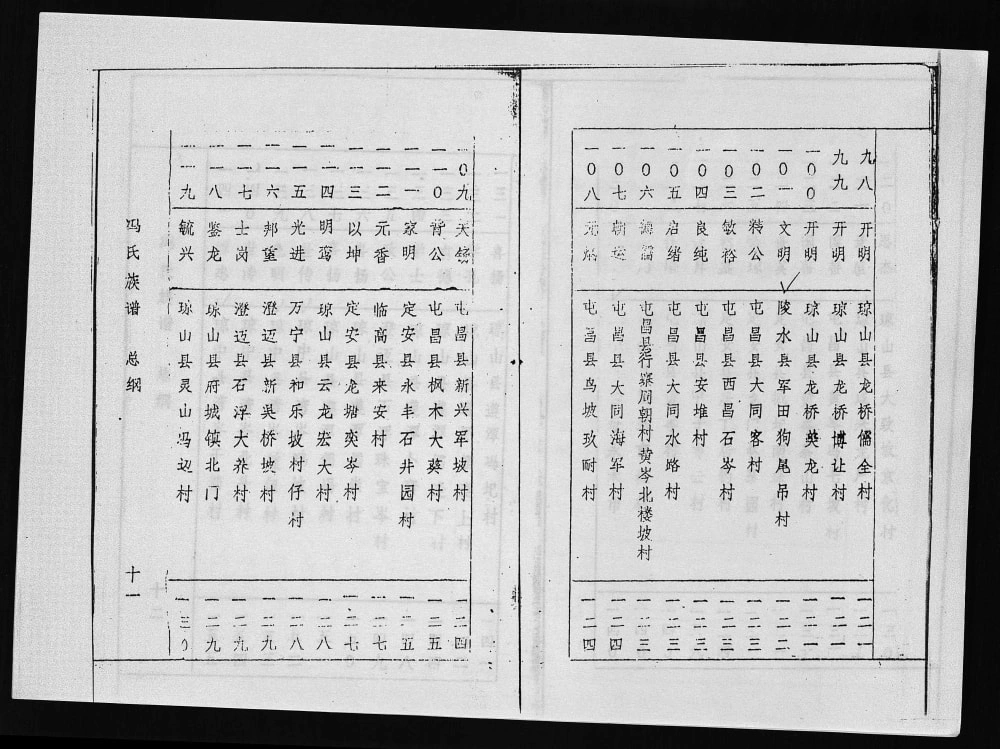 九八 开明 琼山县龙桥儒全村 一二一
九九 开明 琼山县龙桥博让村 一二一
一00 开明 琼山县龙桥英龙村 一二一
一0一 文明 陵水县军田狗尾吊村 一二二
一0二 特公 屯昌县大同客村 一二三
一0三 敏裕 屯昌县西昌石岑村 一二三
一0四 良纯 屯昌县安堆村 一二三
一0五 启绪 屯昌县大同水路村 一二三
一0六 屯昌县行寨同朝村黄岑北楼坡村 一二三
一0七 朝 屯昌县大同海军村 一二四
一0八 元 屯昌县鸟坡玖耐村 一二四
一0九 天锡 屯昌县新兴军坡村 一二四
一一0 肯公 屯昌县枫木大葵村 一二五
一一一 家明 定安县永丰石井园村 一二五
一一二 元香 临高县来安村 一二七
一一三 以坤 定安县龙塘奕岑村 一二七
一一四 明鸾 琼山县云龙宏大村 一二八
一一五 光进 万宁县和乐坡村仔村 一二八
一一六 邦重 澄迈县新吴桥坡村 一二九
一一七 士岗 澄迈县石浮大养村 一二九
一一八 鉴龙 琼山县府城镇北门 一二九
一一九 毓兴 琼山县灵山冯边村 一三0
冯氏族谱 总纲 十一